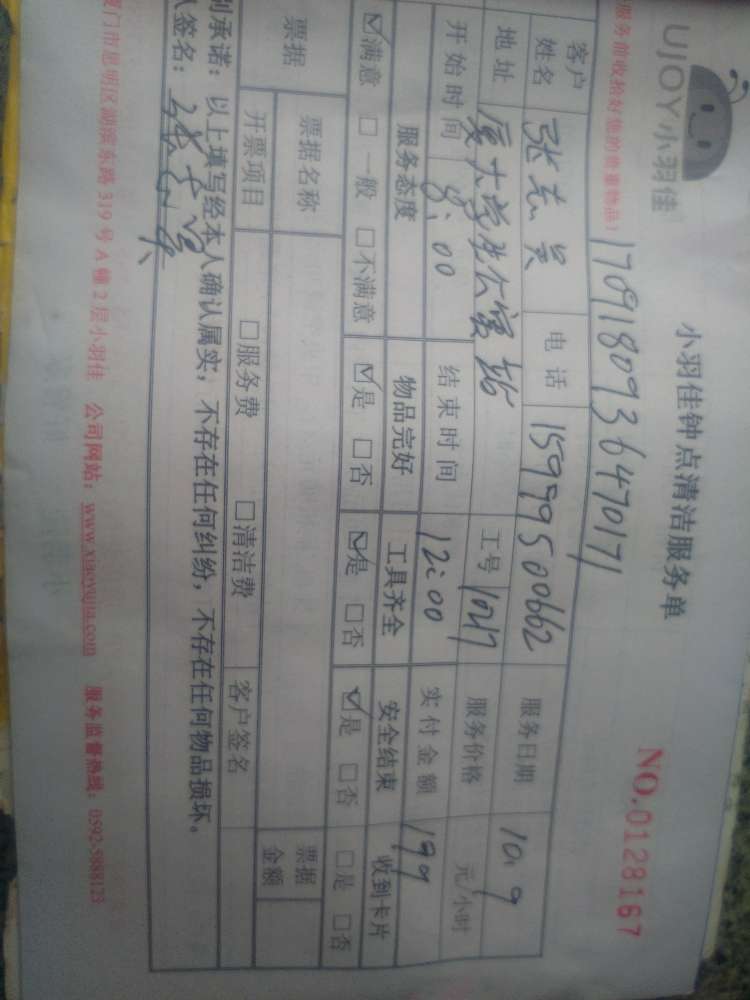 UJOY小羽佳
小羽佳钟点清洁服务单
NO.0128167
服务前收拾好您的贵重物品！
1709180936470171
客户姓名 张志 电话 15999500662 服务日期 10.9
地址 厦大学生公寓 工号 1047 服务价格 元/小时
开始时间 8:00 结束时间 12:00 实付金额 199
服务态度 物品完好 工具齐全 安全结束 收到卡片
☑满意 □一般 □不满意 ☑是 □否 ☑是 □否 ☑是 □否 □是 □否
票据 票据名称 票据金额
开票项目 □服务费 □清洁费 客户签名
别承诺：以上填写经本人确认属实，不存在任何纠纷，不存在任何物品损坏。
人签名：
厦门市思明区湖滨东路319号A幢2层小羽佳 公司网站：www.xiaoyujia.com 服务监督热线：0592-5888123